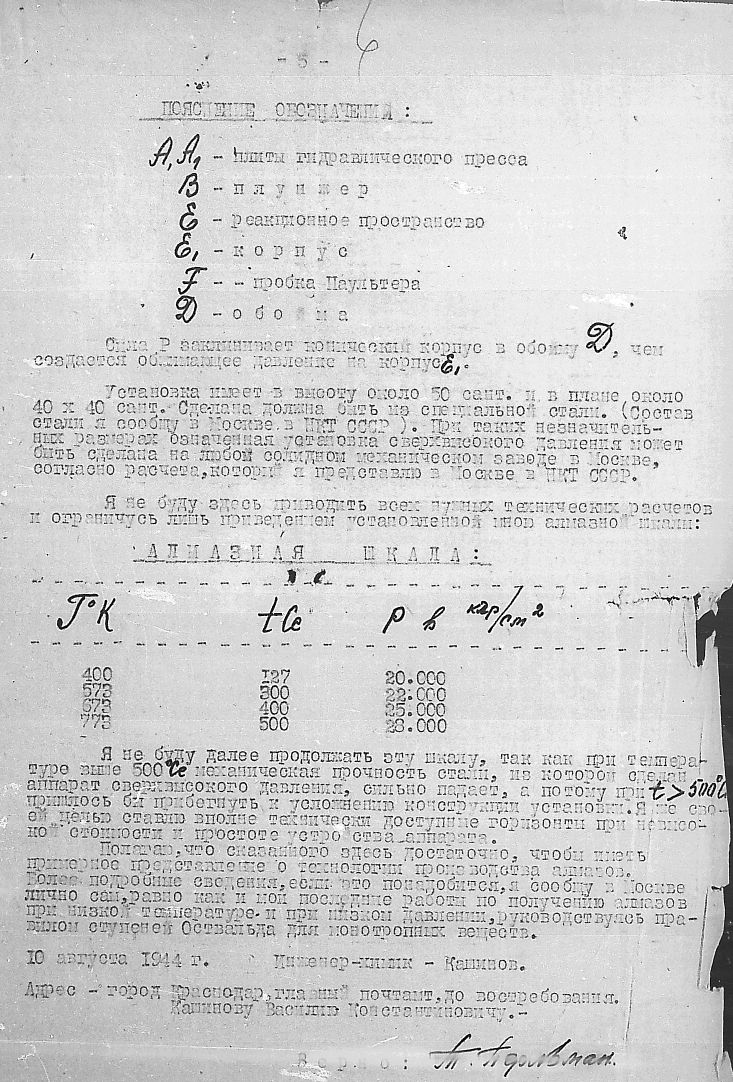 6
- 5 -
ПОЯСНЕНИЕ ОБОЗНАЧЕНИЯ:
A, A₁ - плиты гидравлического пресса
B - плунжер
E - реакционное пространство
E₁ - корпус
F - - пробка Паультера
D - обойма
Сила P заклинивает конический корпус в обойму D, чем
создается обжимающее давление на корпус E₁.
Установка имеет в высоту около 50 сант. и в плане около
40 х 40 сант. Сделана должна быть из специальной стали. (Состав
стали я сообщу в Москве в НКТ СССР ). При таких незначитель-
ных размерах означенная установка сверхвисокого давления может
быть сделана на любом солидном механическом заводе в Москве,
согласно расчета, который я представлю в Москве в НКТ СССР.
Я не буду здесь приводить всех нужных технических расчетов
и ограничусь лишь приведением установленной мною алмазной шкали:
АЛМАЗНАЯ ШКАЛА:
T°K tС P в кгр/см²
400 127 20.000
573 300 22.000
673 400 25.000
773 500 28.000
Я не буду далее продолжать эту шкалу, так как при темпера-
туре выше 500°С механическая прочность стали, из которой сделан
аппарат сверхвисокого давления, сильно падает, а потому при t > 500°C
пришлось бы прибегнуть к усложнению конструкции установки. Я же сво-
ей целью ставлю вполне технически доступные горизонты при невысо-
кой стоимости и простоте устройства аппарата.
Полагаю, что сказанного здесь достаточно, чтобы иметь
примерное представление о технологии производства алмазов.
Более подробные сведения, если это понадобится, я сообщу в Москве
лично сам, равно как и мои последние работы по получению алмазов
при низкой температуре и при низком давлении, руководствуясь пра-
вилом ступеней Оствальда для монотропных веществ.
10 августа 1944 г. Инженер-химик - Кашинов.
Адрес - город Краснодар, главный почтамт, до востребования.
Кашинову Василию Константиновичу.-
Верно: